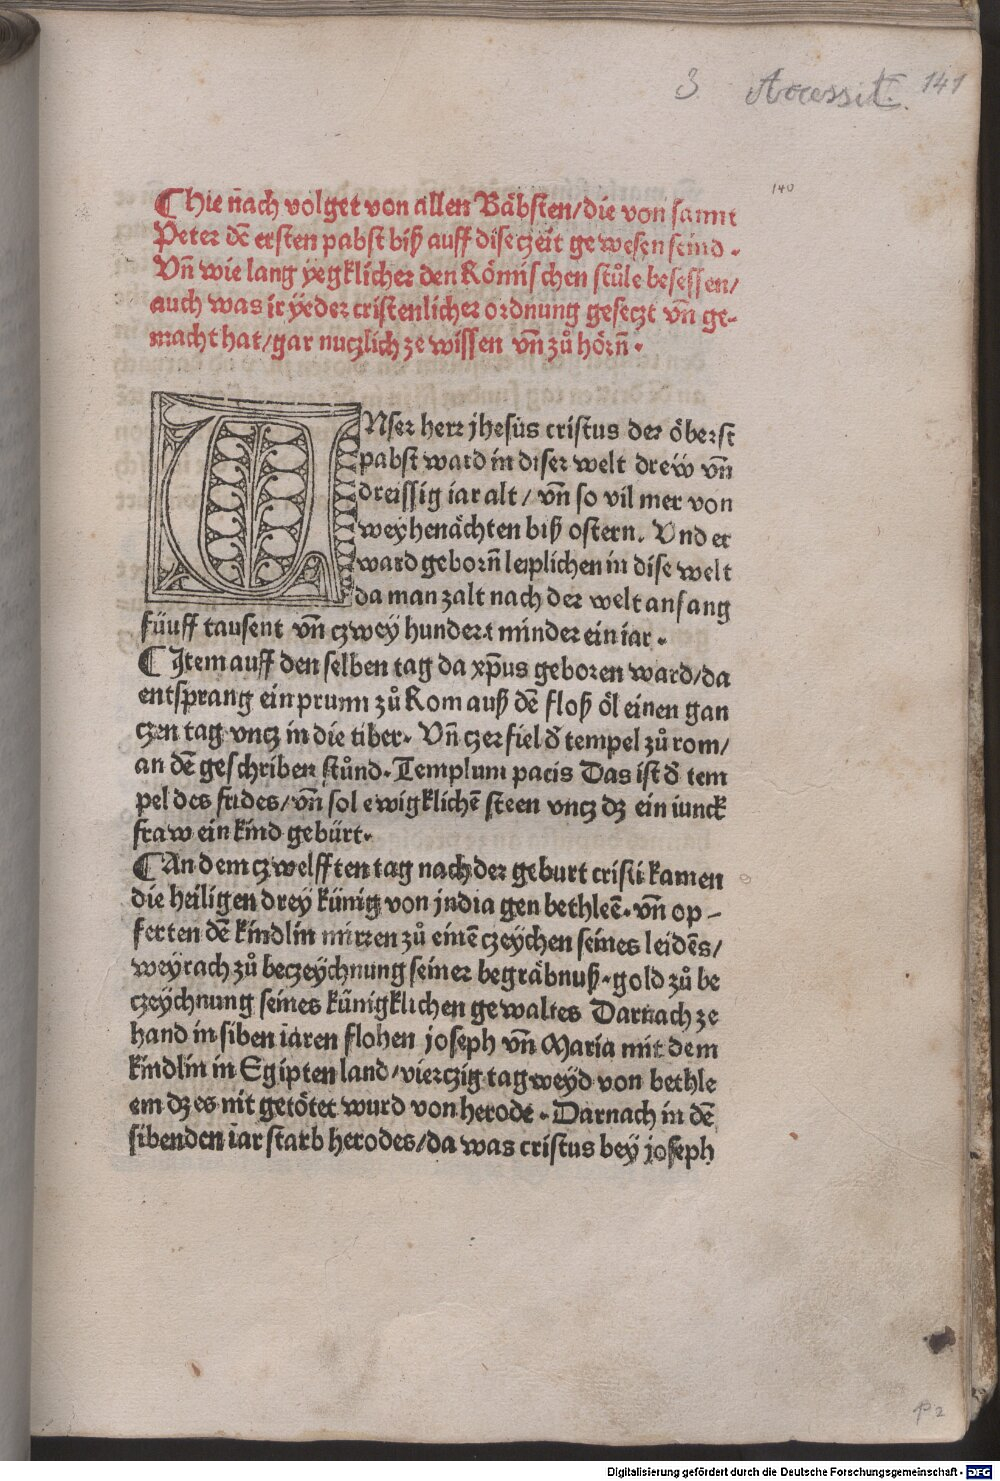 3 Accessit. 141
140
¶ hie nach volget von allen Bäbsten/die von sannt
Peter dē ersten pabst biß auff dise czeit gewesen seind.
Vn̄ wie lang yegklicher den Römischen stůle besessen/
auch was ir yeder cristenlicher ordnung geseczt vn̄ ge-
macht hat/gar nuczlich ze wissen vn̄ zů hörn̄.
VNser herr jhesus cristus der öberst
pabst ward in diser welt drew vn̄
dreissig iar alt/vn̄ so vil mer von
weyhenächten biß ostern. Vnd er
ward geborn̄ leiplichen in dise welt
da man zalt nach der welt anfang
füuff tausent vn̄ czwey hundert minder ein iar.
¶ Item auff den selben tag da xp̄us geboren ward/da
entsprang ein prunn zů Rom auß dē floß öl einen gan
czen tag vncz in die tiber. Vn̄ czerfiel đ tempel zů rom/
an dē geschriben stůnd. Templum pacis Das ist đ tem
pel des frides/vn̄ sol ewigklichē steen vncz dz ein iunck
fraw ein kind gebürt.
¶ An dem czwelfften tag nach der geburt cristi kamen
die heiligen drey künig von jndia gen bethleē. vn̄ op-
ferten dē kindlin mirren zů einē czeychen seines leidēs/
weyrach zů beczeychnung seiner begräbnuß. gold zů be
czeychnung seines künigklichen gewaltes Darnach ze
hand in siben iaren flohen joseph vn̄ Maria mit dem
kindlin in Egipten land/vierczig tagweyd von bethle
em dz es nit getötet wurd von herode. Darnach in dē
sibenden iar starb herodes/da was cristus bey joseph
p 2
Digitalisierung gefördert durch die Deutsche Forschungsgemeinschaft - DFG